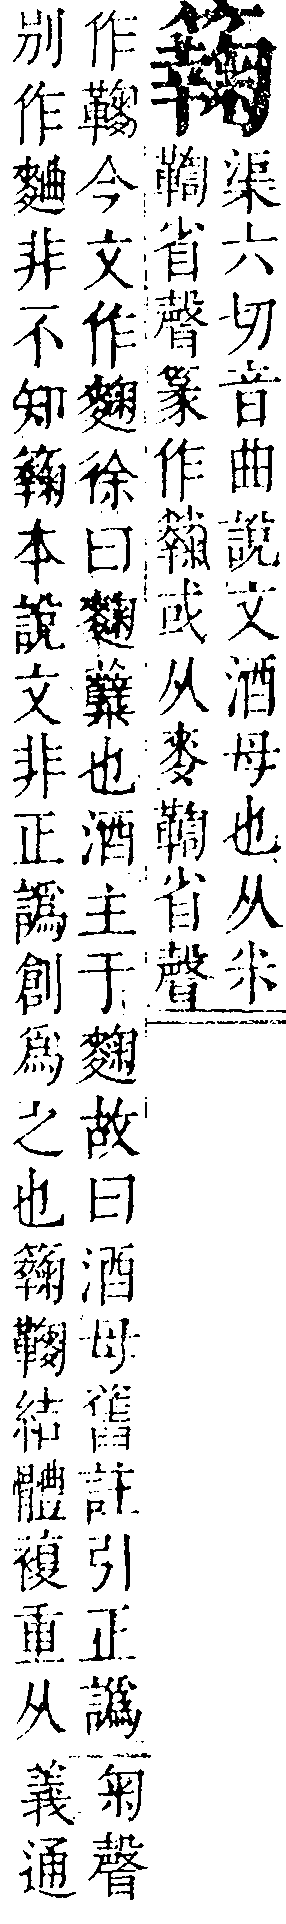 渠六切音曲說文酒母也从米
鞫省聲篆作或从麥鞫省聲
作今文作麴徐曰麴糵也酒主于麴故曰酒母舊註引正譌
别作麯非不知本說文非正譌創爲之也結體複重从
匊聲
義通